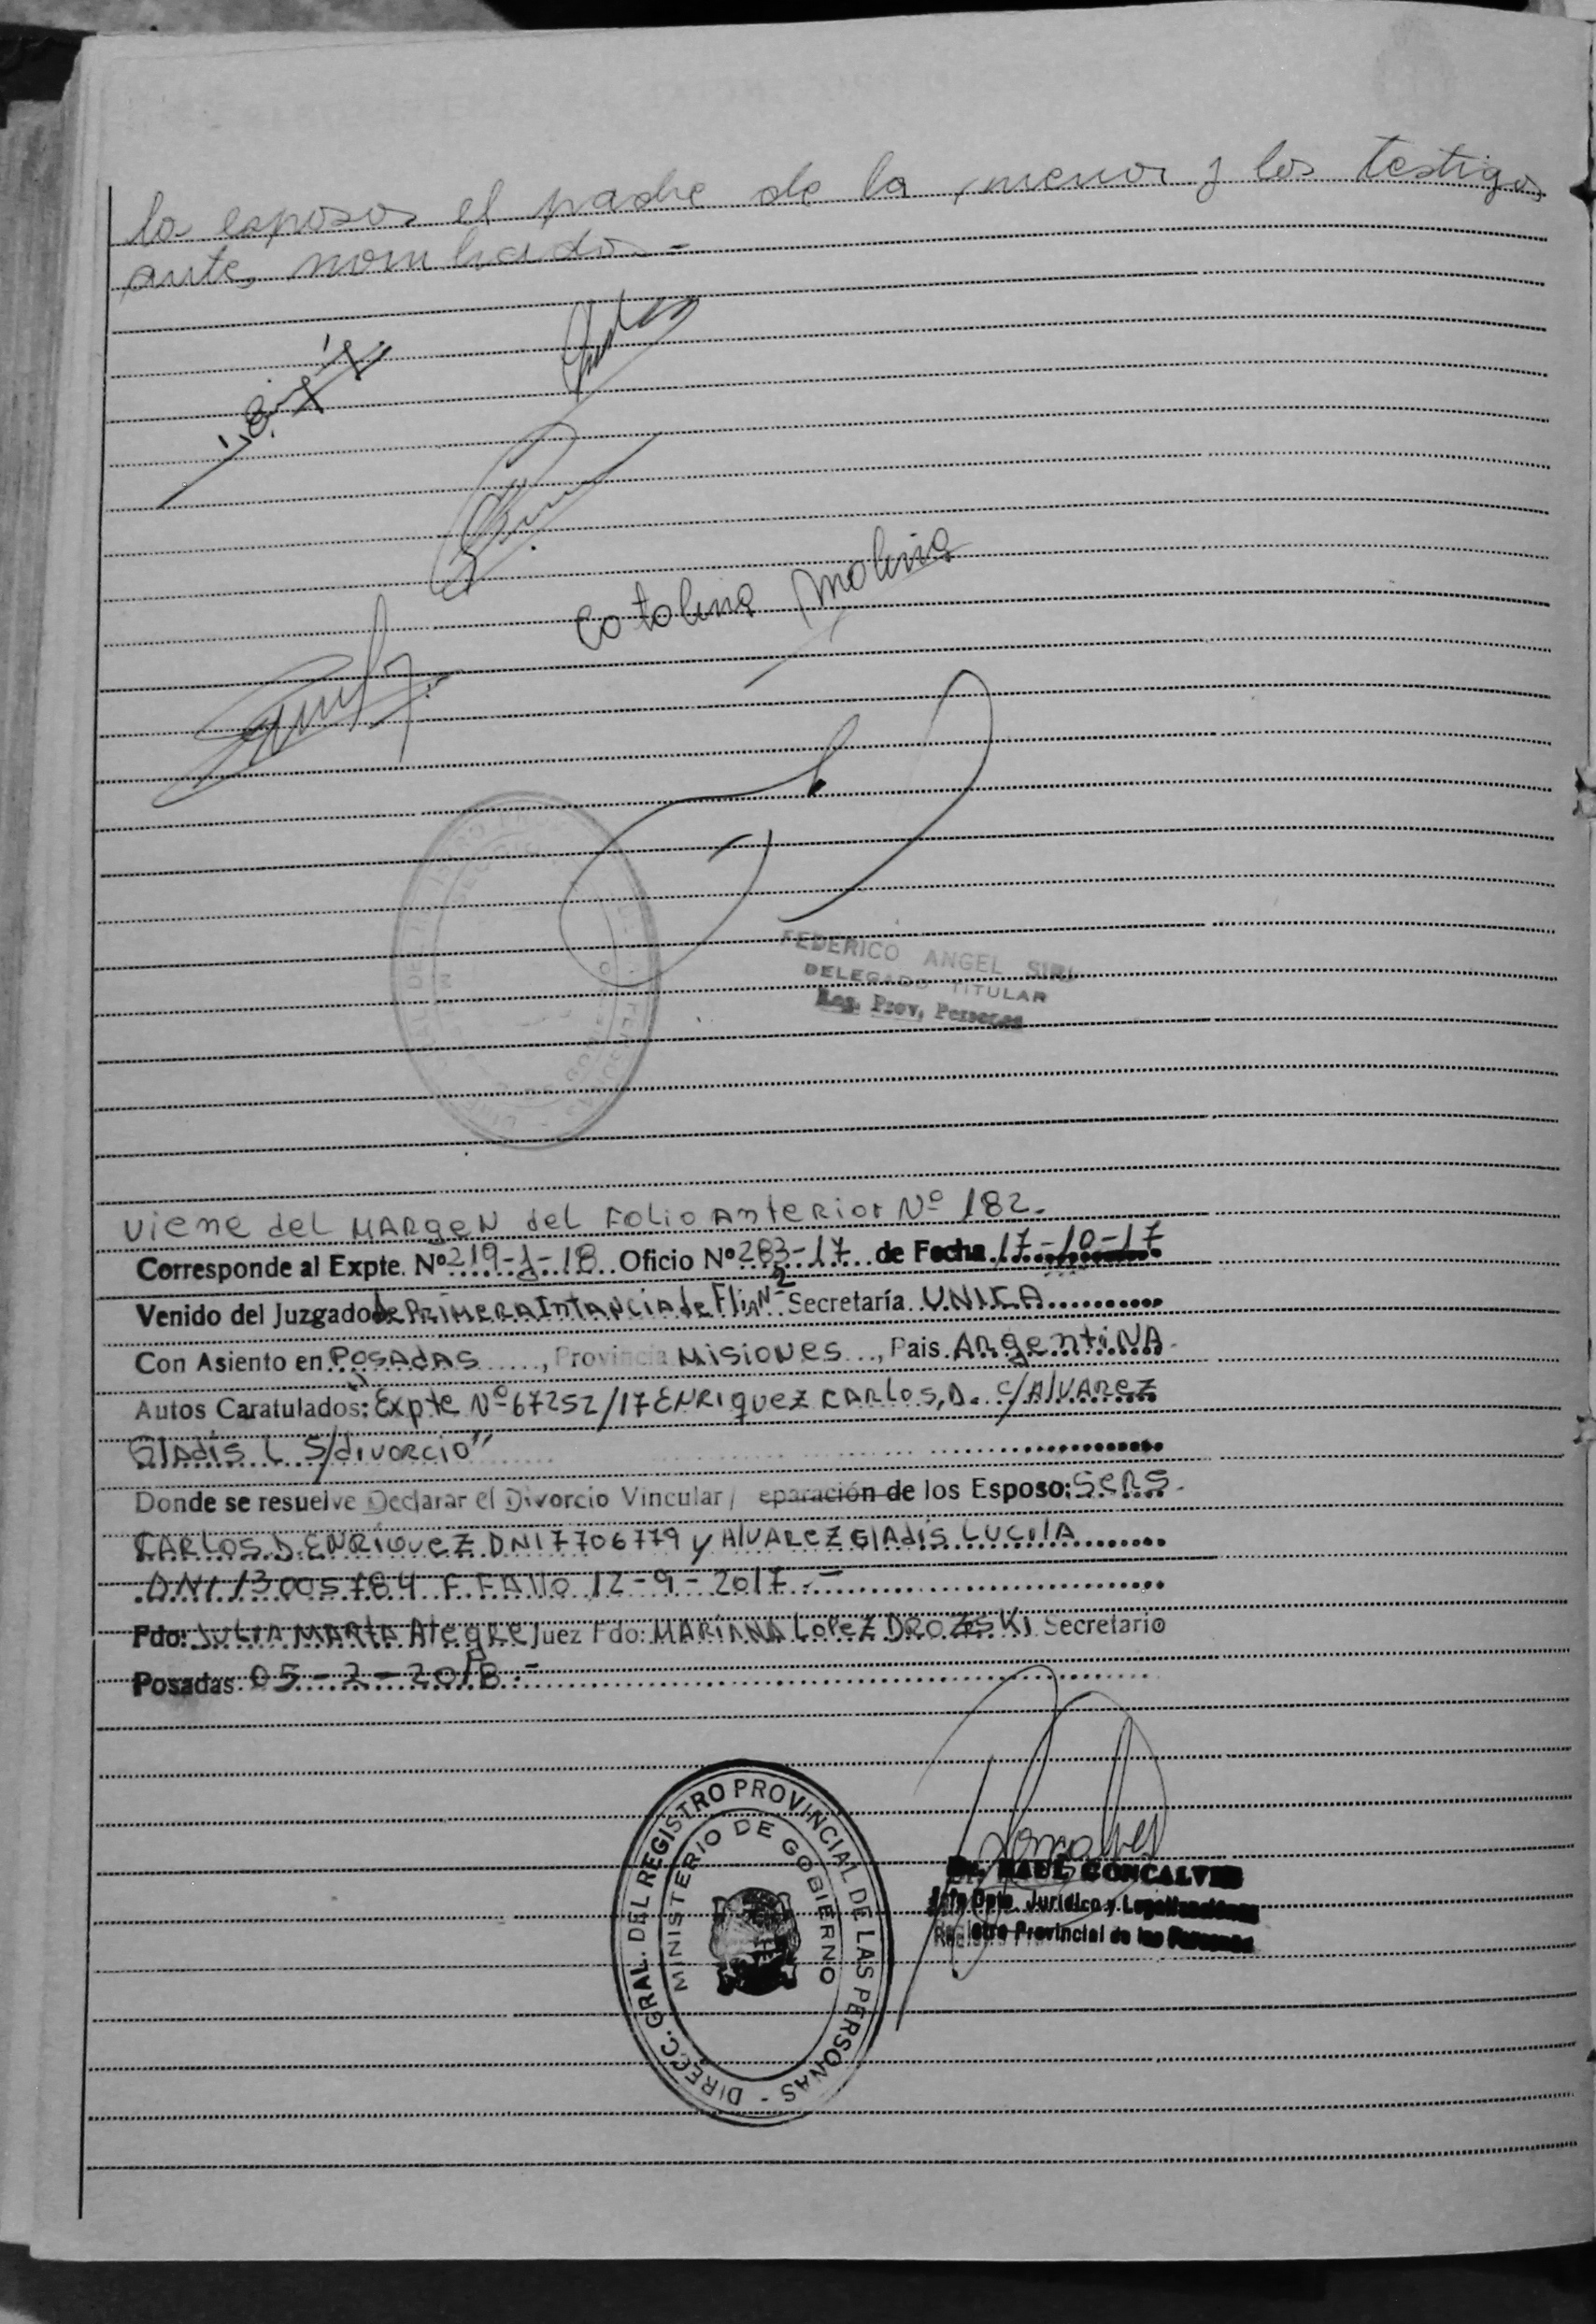 la esposos el padre de la menor y los testigos
antes nombrados =
Catalina Molina
FEDERICO ANGEL SIRI
DELEGADO TITULAR
Reg. Prov, Personas
Viene del MARgeN del FOLio ANteRior Nº 182.
Corresponde al Expte. Nº 219-J-18 Oficio Nº 283-17 de Fecha 17-10-17
Venido del Juzgado de PRiMERA IntANCiA de Flia Nº2 Secretaría UNICA
Con Asiento en POSADAS, Provincia MisioNes, Pais ARgeNtiNA.
Autos Caratulados: "Expte Nº 67252/17 ENRiqueZ CARLOS, D. c/ AlVAReZ
GlAdis L S/divorcio"
Donde se resuelve Declarar el Divorcio Vincular/ eparación de los Esposo: SeRS.
CARLOS D. ENRiqueZ DNI 7706779 y AlVAReZ GlAdis LUCilA
DNI 13005784 F. FAllo 12-9-2017.-
Fdo: JULIA MARtA AlegRe Juez Fdo: MARiANA LopeZ DROZESKi Secretario
Posadas 05-2-2018.-
DIRECC. GRAL. DEL REGISTRO PROVINCIAL DE LAS PERSONAS -
MINISTERIO DE GOBIERNO
Dr. RAUL GONCALVES
Jefe Dpto. Jurídico y Legalizaciones
Registro Provincial de las Personas